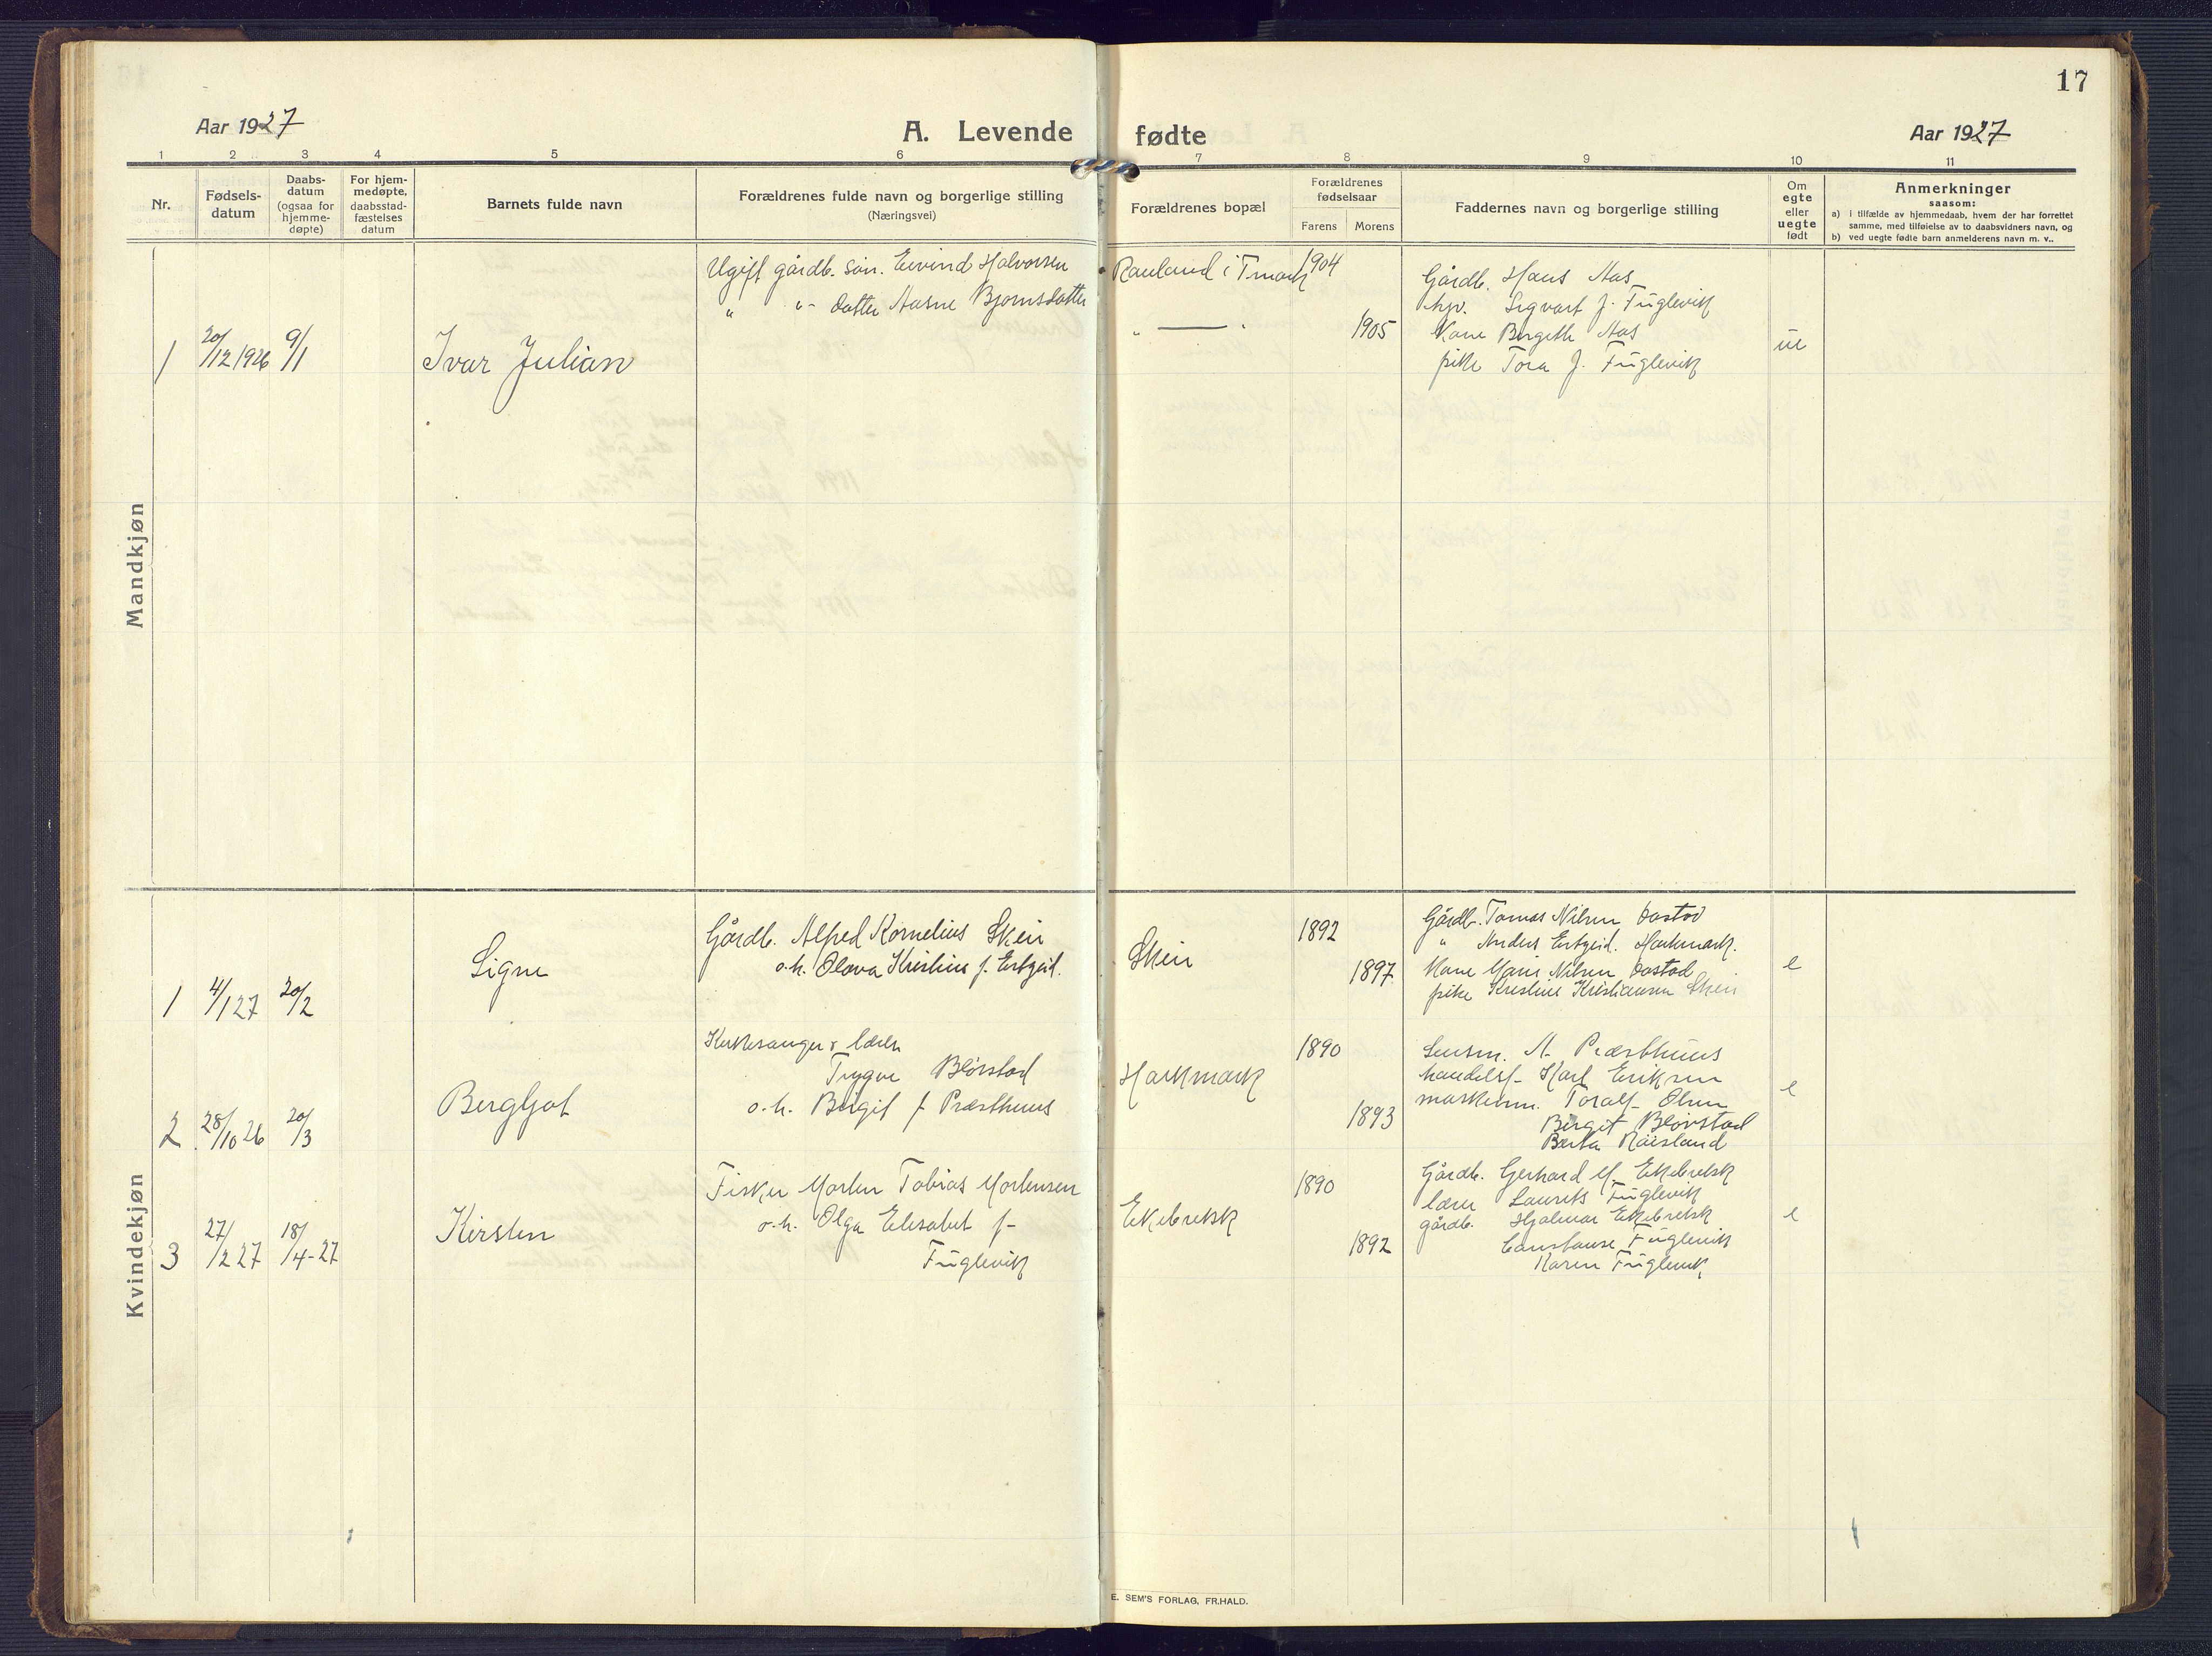 17
Aar 1927
A. Levende fødte
Aar 1927
1 2 3 4 5 6 7 8 9 10 11
Nr.
Fødsels-
datum
Daabs-
datum
(ogsaa for
hjemme-
døpte)
For hjem-
medøpte,
daabsstad-
fæstelses
datum
Barnets fulde navn
Forældrenes fulde navn og borgerlige stilling
(Næringsvei)
Forældrenes bopæl
Forældrenes
fødselsaar
Farens Morens
Faddernes navn og borgerlige stilling
Om
egte
eller
uegte
født
Anmerkninger
saasom:
a) i tilfælde av hjemmedaab, hvem der har forrettet
samme, med tilføielse av to daabsvidners navn, og
b) ved uegte fødte barn anmelderens navn m. v..
Mandkjøn
1 20/12 1926 9/1
Ivar Julian
Ugift gårdb. søn. Eivind Halvorsen
" " datter Aasne Bjørnsdatter
Rauland i Tmark
" — "
1904
1905
Gårdb. Hans Aas
Sigvart J. Fuglevik
Kone Bergith Aas
pike Tora J. Fuglevik
ue
Kvindekjøn
1 4/1 27 20/2
Signe
Gårdb. Alfred Kornelius Skei
o.h. Olava Kristine f.
Skei
1892
1897
Gårdb. Tomas Nilsen
" Anders Harkmark.
Kone Marie Nilsen
pike Kristine Kristiansen Skei
e
2 28/10 26 20/3
Bergljot
Kirkesanger & lærer
Trygve Bløvstad
o.h. Birgit f. Præsthuus
Harkmark
1890
1893
Lensm. A. Præsthuus
handelsf. Karl Eriksen
maskinm. Toralf Olsen
Birgit Bløvstad
Berta Røisland
e
3 27/2 27 18/4-27
Kirsten
Fisker Morten Tobias Mortensen
o.h. Olga Elisabet f-
Fuglevik
Ekebretsk
1890
1892
Gårdb. Gerhard M. Ekebretsk
lærer Laurits Fuglevik
gårdb. Hjalmar Ekebretsk
Constanse Fuglevik
Karen Fuglevik
e
E. SEM'S FORLAG, FR.HALD.